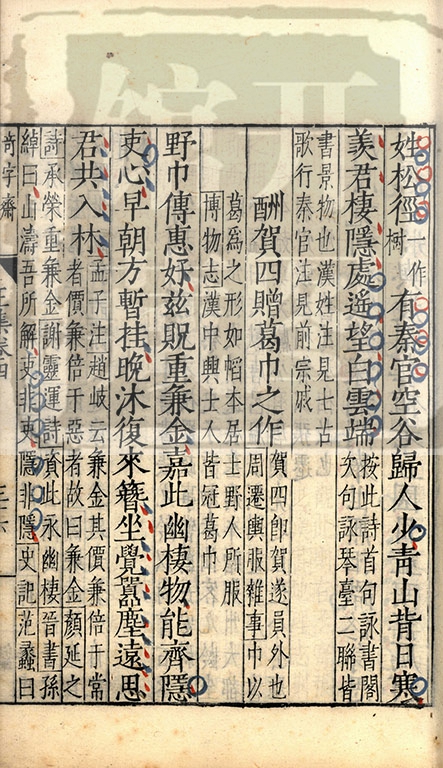 姓松徑一作樹有秦官空谷歸人少青山背日寒
羨君棲隱處遙望白雲端
按此詩首句詠書閣
次句詠琴臺二聯皆
書景物也漢姓注見七古
歌行秦官注見前宗戚
酬賀四贈葛巾之作
賀四卽賀遂員外也
周遷輿服雜事巾以
葛爲之形如幍本居士野人所服
博物志漢中興士人皆冠葛巾
野巾傳惠好茲貺重兼金嘉此幽棲物能齊隱
吏心早朝方暫挂晚沐復來簪坐覺囂塵遠思
君共入林
孟子注趙岐云兼金其價兼倍于常
者價兼倍于惡者故曰兼金顏延之
詩承榮重兼金謝靈運詩資此永幽棲晉書孫
綽曰山濤吾所解吏非吏隱非隱史記范蠡曰
奇字齋
卷四